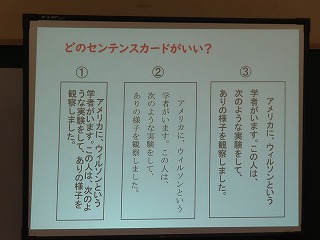 どのセンテンスカードがいい?
①
アメリカに、ウイルソンという
学者がいます。この人は、次のよ
うな実験をして、ありの様子を
観察しました。
②
アメリカに、ウイルソンという
学者がいます。この人は、
次のような実験をして、
ありの様子を観察しました。
③
アメリカに、ウイルソンという
学者がいます。この人は、
次のような実験をして、
ありの様子を観察しました。